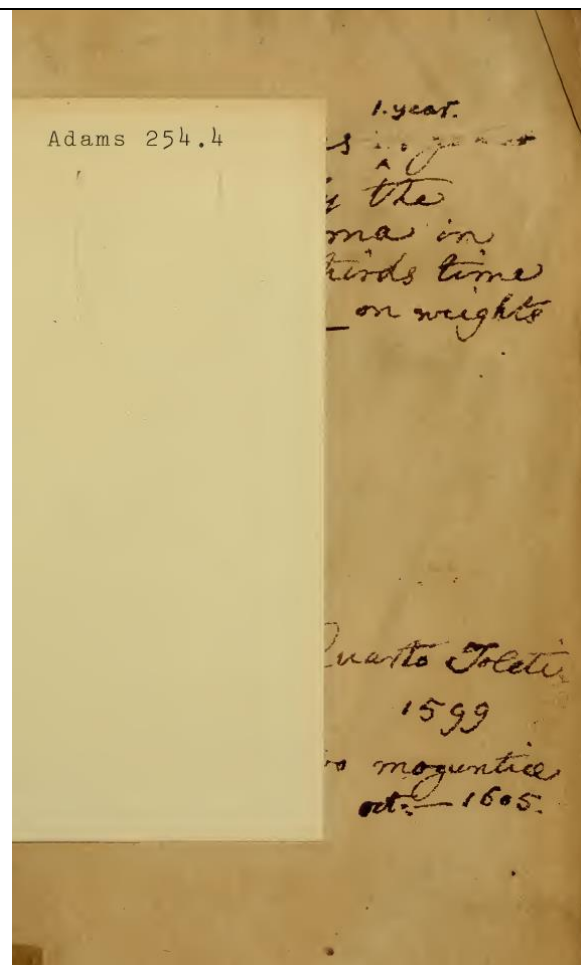 Adams 254.4
1. year.
s
y the
ma in
hirds time
on weights
uarto Toleti
1599
o moguntiae
oct. — 1605.